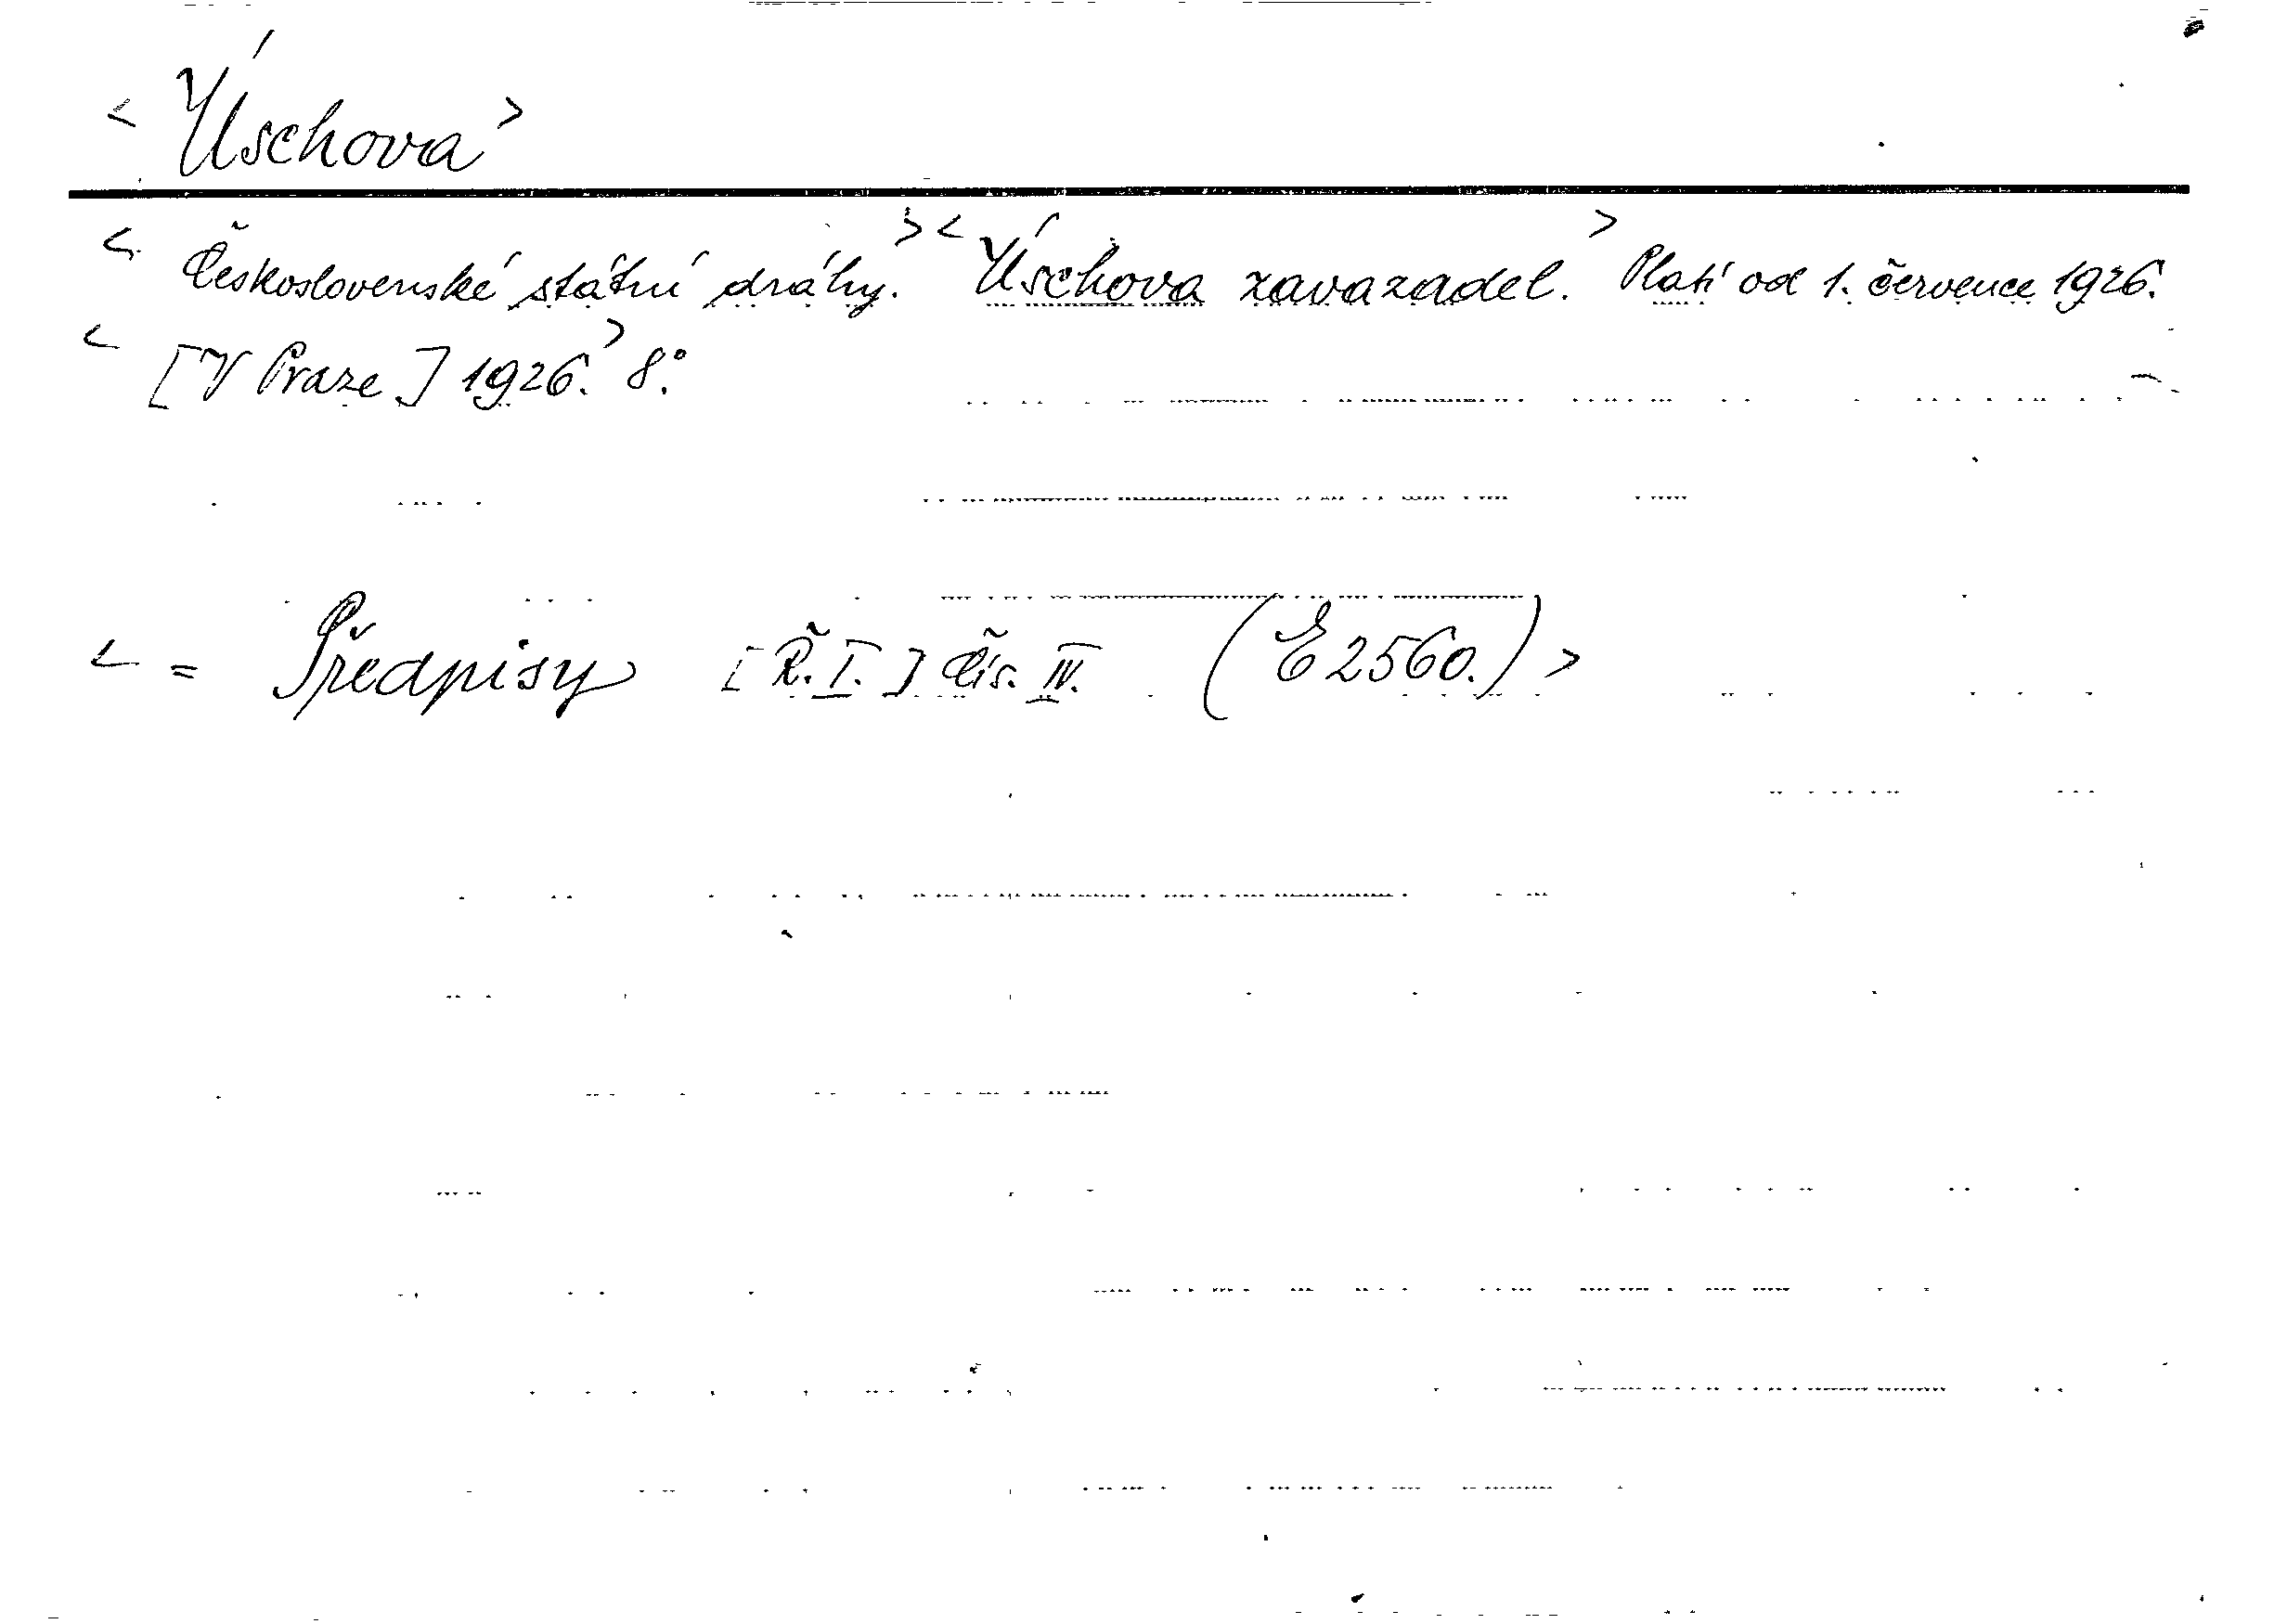 < Úschova >
< Československé státní dráhy. > < Úschova zavazadel. > Platí od 1. července 1926.
< [V Praze.] 1926. > 8°.
< = Předpisy [Ř. I.] čís. IV. (E 2560.) >